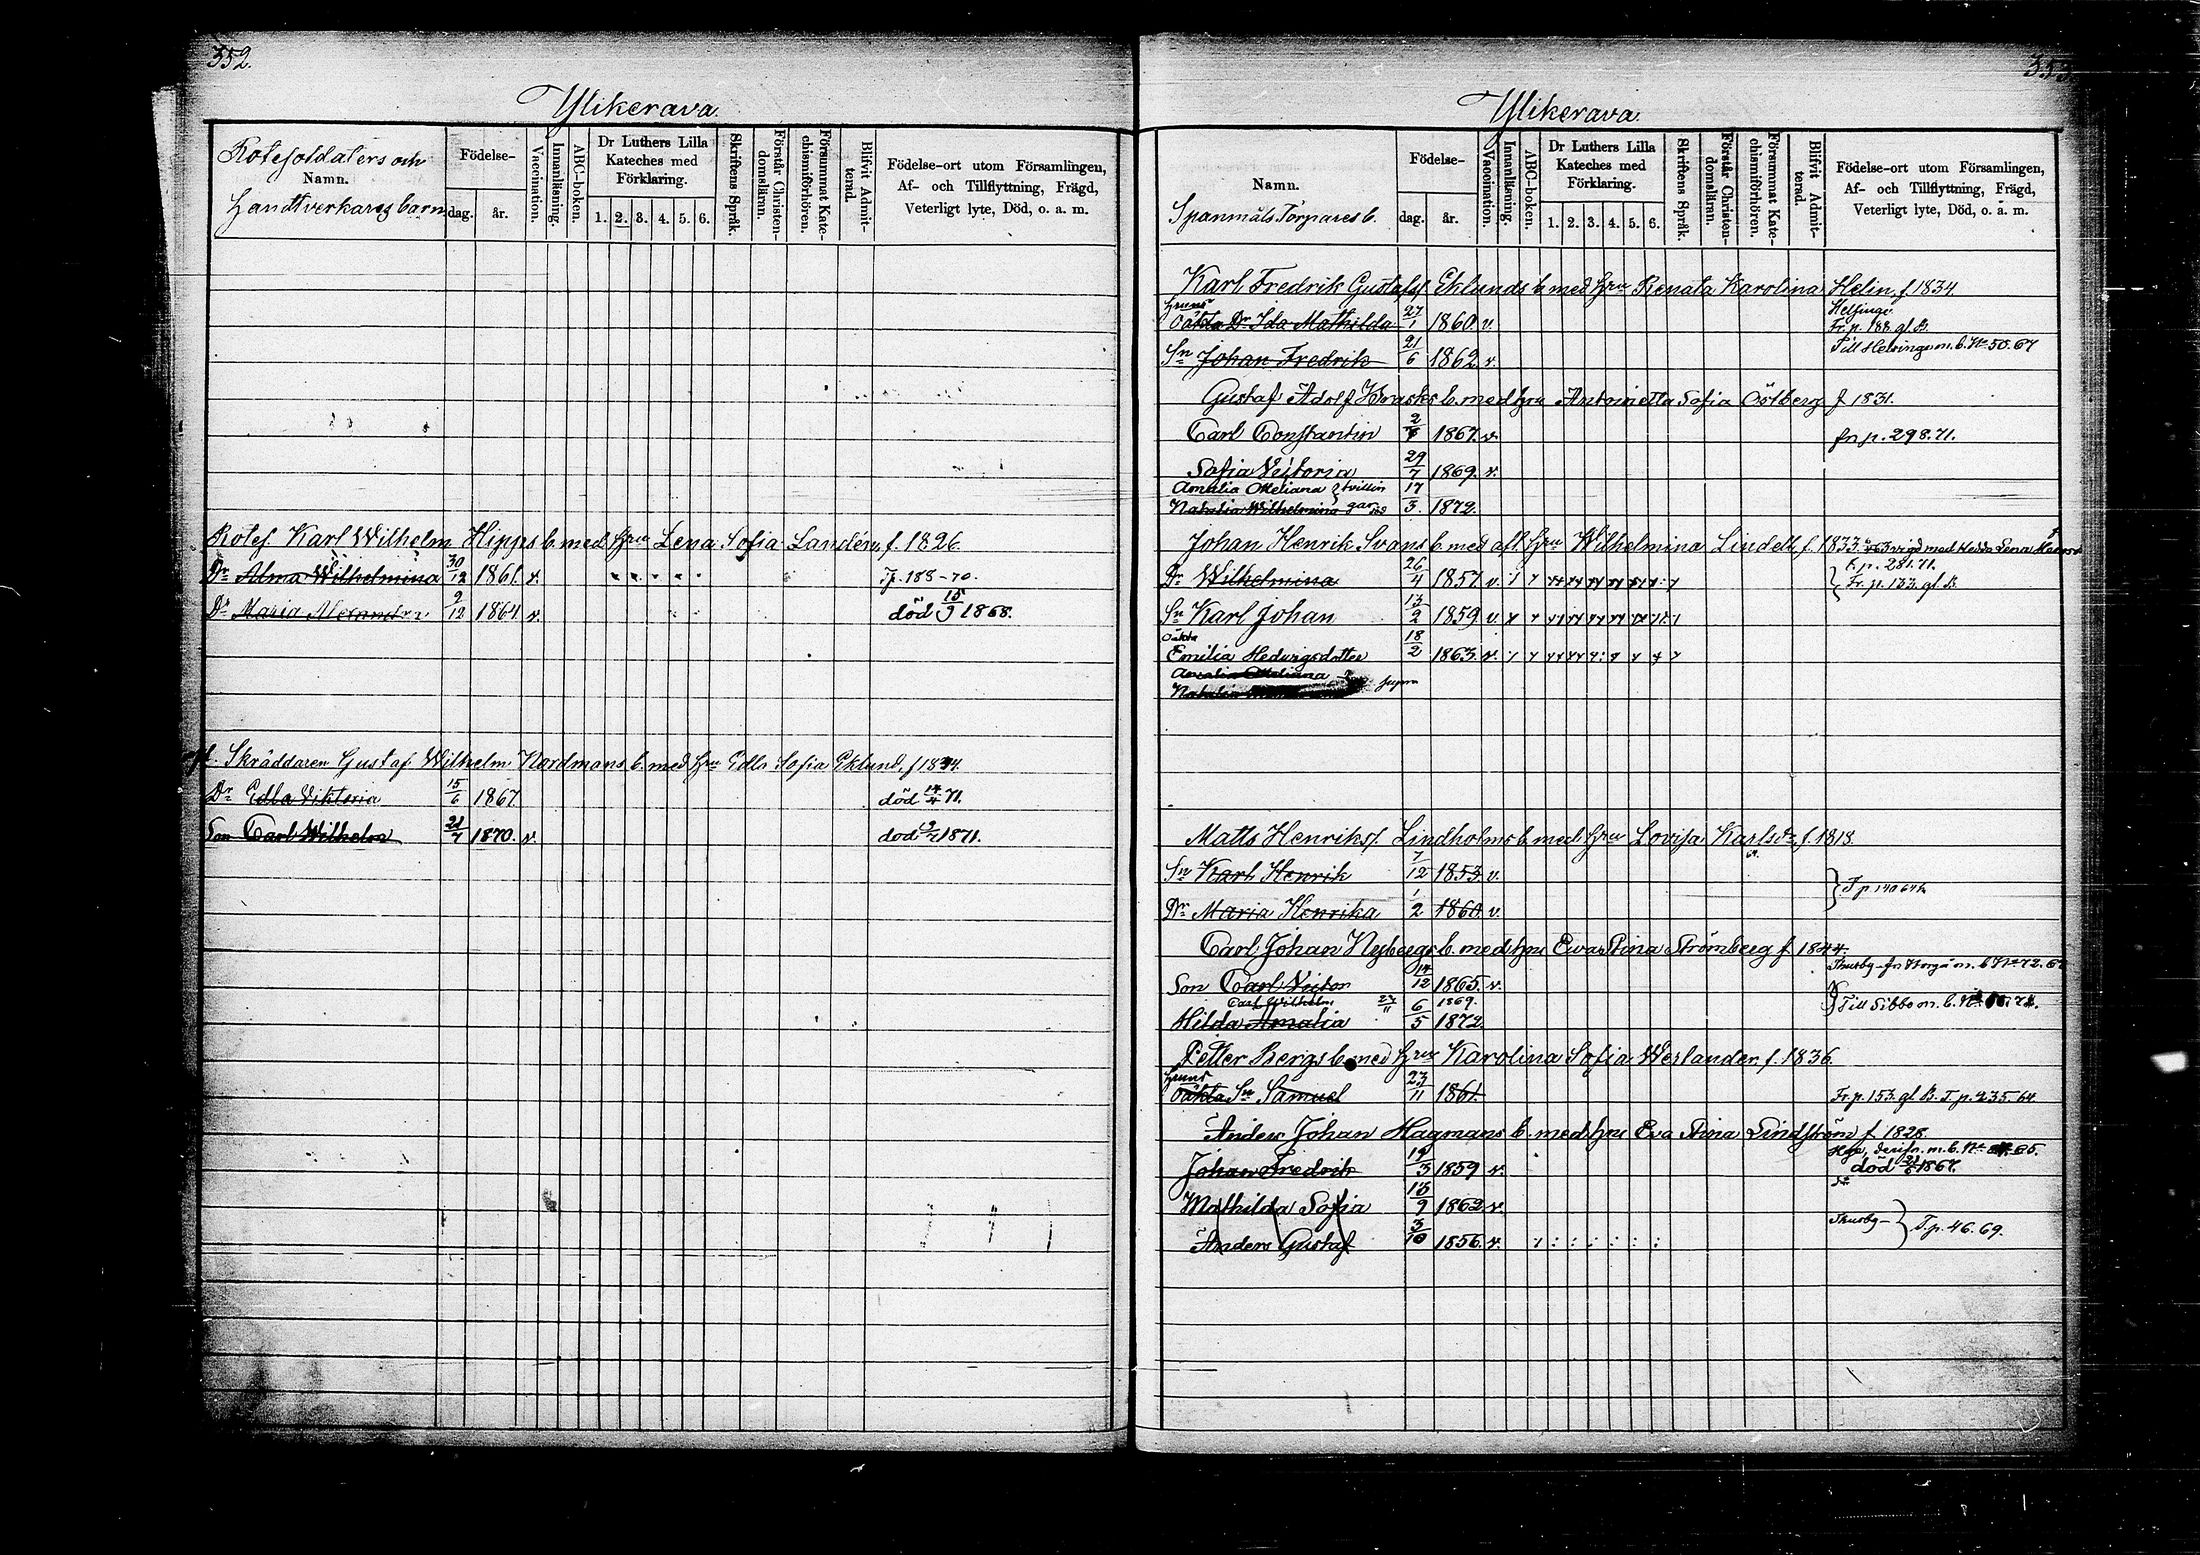 352.
Ylikerava
Rotesoldaters och
Namn.
Handtverkares barn
Födelse-
dag.
år.
Vaccination.
Innanläsning.
ABC-boken.
Dr Luthers Lilla
Kateches med
Förklaring.
1. 2. 3. 4. 5. 6.
Skriftens Språk.
Förstår Christen-
domsläran.
Försummat Kate-
chismiförhören.
Blifvit Admit-
terad.
Födelse-ort utom Församlingen,
Af- och Tillflyttning, Frägd,
Veterligt lyte, Död, o. a. m.
Rotes. Karl Wilhelm Hipps b. med Hru Lena Sofia Landén, f. 1826.
Dr Alma Wilhelmina 30/12 1861. v. Tp. 188-70.
Dr Maria 9/12 1864. v. död 15/9 1868.
Skräddaren Gustaf Wilhelm Nordmans b. med Hru Edla Sofia Eklund, f 1844.
Dr Edla Viktoria 15/6 1867 död 14/4 71.
Son Carl Wilhelm 21/7 1870. v. död 1871.
353
Ylikerava
Namn.
Spanmåls Torpares b.
Födelse-
dag.
år.
Vaccination.
Innanläsning.
ABC-boken.
Dr Luthers Lilla
Kateches med
Förklaring.
1. 2. 3. 4. 5. 6.
Skriftens Språk.
Förstår Christen-
domsläran.
Försummat Kate-
chismiförhören.
Blifvit Admit-
terad.
Födelse-ort utom Församlingen,
Af- och Tillflyttning, Frägd,
Veterligt lyte, Död, o. a. m.
Karl Fredrik Gustafsf. Eklunds b. med Hru Renata Karolina Helin, f. 1834.
Hruns Helsinge
Oäkta Dr Ida Mathilda 27/1 1860. v. Fr. p. 188. gl. B.
Sn Johan Fredrik 21/6 1862. v. Till Helsinge m. b. No 50. 67
Gustaf Adolf b. med hru Antoinetta Sofia Östberg f 1831.
Carl Constantin 1867. v. fr. p. 298. 71.
Sofia Victoria 29/7 1869. v.
Amalia Meliana tvillin
Natalia Wilhelmina gar 17/3. 1872.
Johan Henrik Svans b. med afl. Hru Wilhelmina Lindell f. 1833. vigd med Hedda Lena
Fr. p. 281. 71.
Dr Wilhelmina 26/4 1857. v. Fr. p. 133. gl. B.
Sn Karl Johan 13/2 1859 v.
Oäkta
Emilia Hedvigsdotter 18/2 1863. v.
Amalia Meliana
Natalia supra
Matts Henriks f. Lindholms b. med Hru Lovisa Karlsdr, f. 1818.
Sn Karl Henrik 7/12 1853. v.
Dr Maria Henrika 1/2 1860 v.
Carl Johan Nybergs b. med hru Eva Stina Strömberg f. 1844.
Thusby - fr. Borgå m. b. No 72. 67
Son Carl Victor 14/12 1865. v.
Carl Wilhelm 27/11 1869.
Till Sibbo m. b. No 74.
Hilda Amalia 6/5 1872.
Petter Bergs b. med Hru Karolina Sofia Weslander, f. 1836.
Hruns
Oäkta Sn Samuel 23/11 1861. Fr. p. 153. gl. B. T. p. 235. 64.
Anders Johan Hagmans b. med hru Eva Stina Lindström f. 1828.
Johan Fredrik 19/3 1859 v. död 1867.
Mathilda Sofia 15/9 1862 v.
Thusby - T. p. 46. 69.
Anders Gustaf 3/10 1856. v.